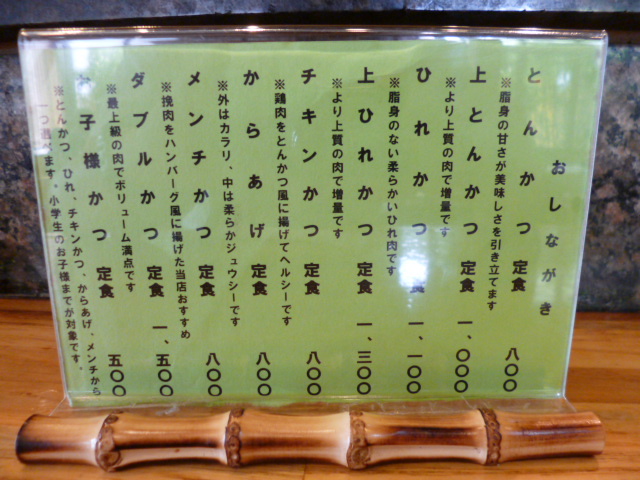 おしながき
とんかつ 定食 八〇〇
※脂身の甘さが美味しさを引き立てます
上とんかつ 定食 一、〇〇〇
※より上質の肉で増量です
ひれかつ 定食 一、一〇〇
※脂身のない柔らかいひれ肉です
上ひれかつ 定食 一、三〇〇
※より上質の肉で増量です
チキンかつ 定食 八〇〇
※鶏肉をとんかつ風に揚げてヘルシーです
からあげ 定食 八〇〇
※外はカラリ、中は柔らかジュウシーです
メンチかつ 定食 八〇〇
※挽肉をハンバーグ風に揚げた当店おすすめ
ダブルかつ 定食 一、五〇〇
※最上級の肉でボリューム満点です
お子様かつ 定食 五〇〇
※とんかつ、ひれ、チキンかつ、からあげ、メンチから
一つ選べます。小学生のお子様までが対象です。